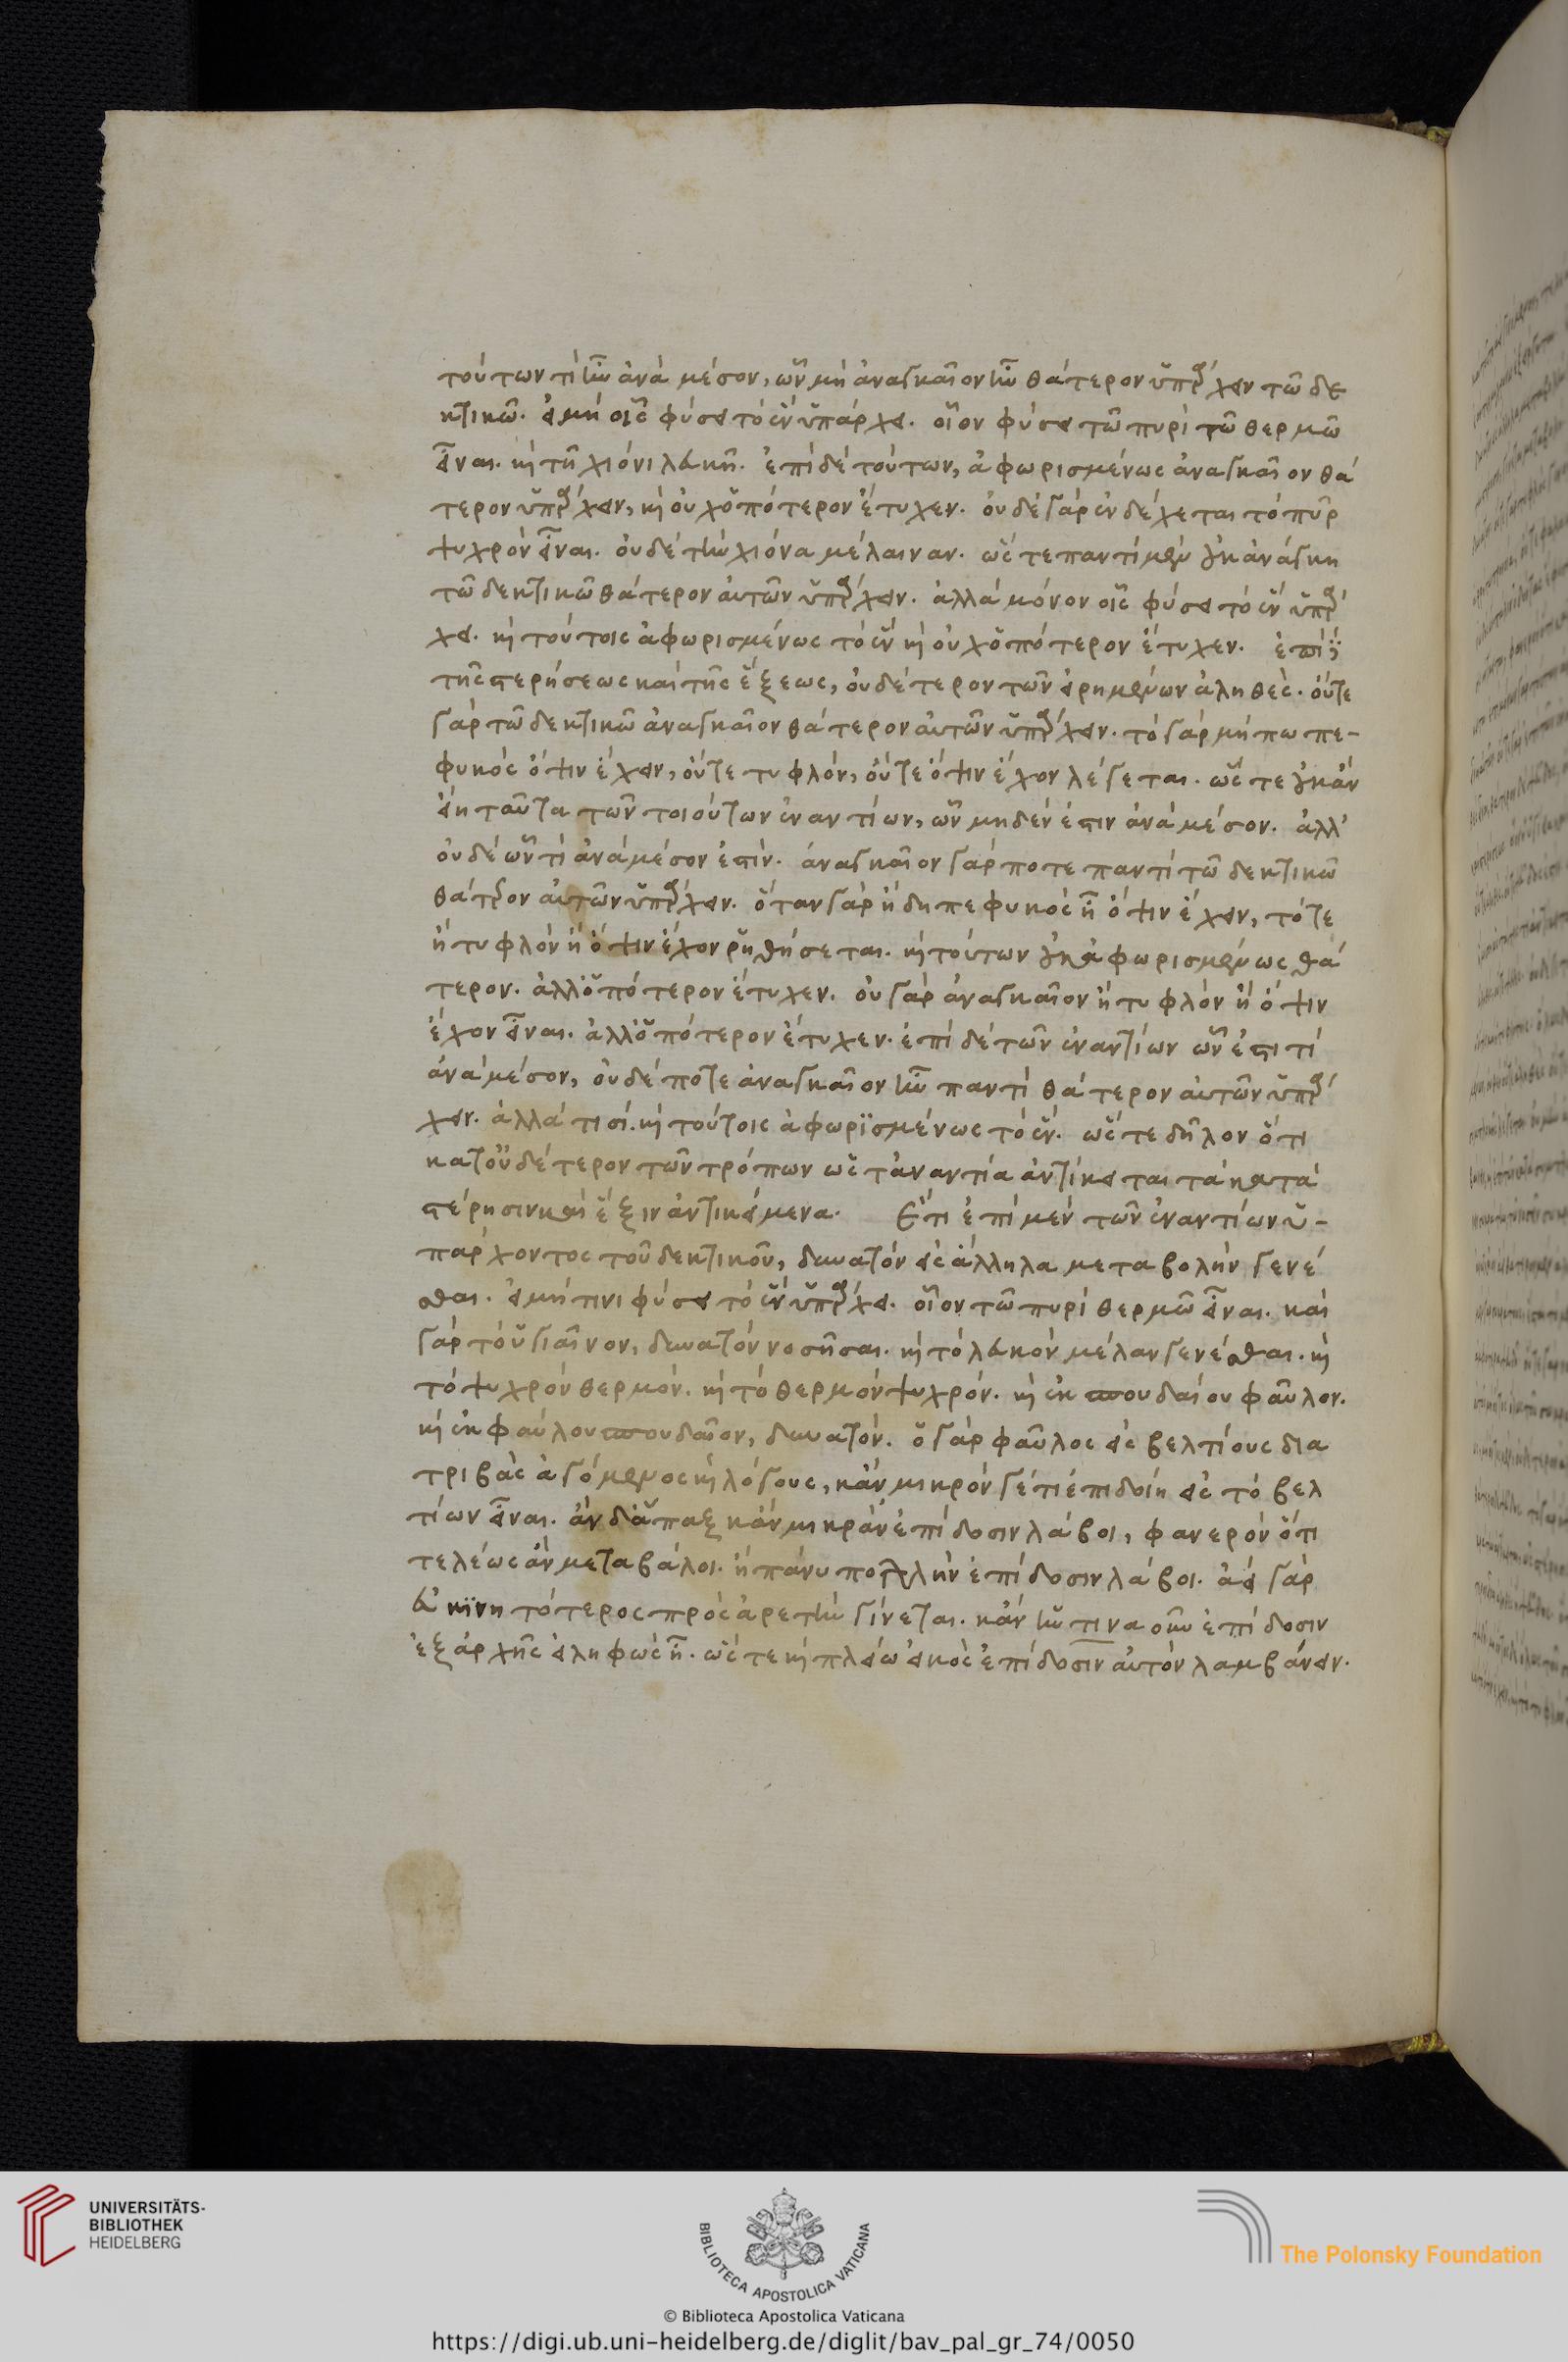 τούτων τὶ ἦν ἀνὰ μέσον, ὧν μὴ ἀναγκαῖον ἦν θάτερον ὑπάρχειν τῶ δε
κτικῶ. εἰ μὴ οἷς φύσει τὸ ἓν ὑπάρχει. οἷον φύσει τῶ πυρὶ τῶ θερμῶ
εἶναι. καὶ τῆ χιόνι λευκῆ. ἐπὶ δὲ τούτων, ἀφωρισμένως ἀναγκαῖον θά
τερον ὑπάρχειν, καὶ οὐχ ὁπότερον ἔτυχεν. οὐδὲ γὰρ ἐνδέχεται τὸ πῦρ
ψυχρὸν εἶναι. οὐδὲ τὴν χιόνα μέλαιναν. ὥστε παντὶ μὲν οὐκ ἀνάγκη
τῶ δεκτικῶ θάτερον αὐτῶν ὑπάρχειν. ἀλλὰ μόνον οἷς φύσει τὸ ἓν ὑπάρ
χει. καὶ τούτοις ἀφωρισμένως τὸ ἓν καὶ οὐχ ὁπότερον ἔτυχεν. ἐπὶ δὲ
τῆς στερήσεως καὶ τῆς ἕξεως, οὐδέτερον τῶν εἰρημένων ἀληθές. οὔτε
γὰρ τῶ δεκτικῶ ἀναγκαῖον θάτερον αὐτῶν ὑπάρχειν. τὸ γὰρ μήπω πε-
φυκὸς ὄψιν ἔχειν, οὔτε τυφλόν, οὔτε ὄψιν ἔχον λέγεται. ὥστε οὐκ ἂν
εἴη ταῦτα τῶν τοιούτων ἐναντίων, ὧν μηδέν ἐστιν ἀνὰ μέσον. ἀλλ'
οὐδὲ ὧν τὶ ἀνὰ μέσον ἐστίν. ἀναγκαῖον γάρ ποτε παντὶ τῶ δεκτικῶ
θάτερον αὐτῶν ὑπάρχειν. ὅταν γὰρ ἤδη πεφυκὸς ἦ ὄψιν ἔχειν, τότε
ἢ τυφλὸν ἢ ὄψιν ἔχον ῥηθήσεται. καὶ τούτων οὐκ ἀφωρισμένως θά
τερον. ἀλλ' ὁπότερον ἔτυχεν. οὐ γὰρ ἀναγκαῖον ἢ τυφλὸν ἢ ὄψιν
ἔχον εἶναι. ἀλλ' ὁπότερον ἔτυχεν. ἐπὶ δὲ τῶν ἐναντίων ὧν ἐστι τὶ
ἀνὰ μέσον, οὐδέποτε ἀναγκαῖον ἦν παντὶ θάτερον αὐτῶν ὑπάρ
χειν. ἀλλὰ τισί. καὶ τούτοις ἀφωρϊσμένως τὸ ἕν. ὥστε δῆλον ὅτι
κατ' οὐδέτερον τῶν τρόπων ὡς τἀναντία ἀντίκειται τὰ κατὰ
στέρησιν καὶ ἕξιν ἀντικείμενα. Ἔτι ἐπὶ μὲν τῶν ἐναντίων ὑ-
πάρχοντος τοῦ δεκτικοῦ, δυνατὸν εἰς ἄλληλα μεταβολὴν γενέ
σθαι. εἰ μή τινι φύσει τὸ ἓν ὑπάρχει. οἷον τῶ πυρὶ θερμῶ εἶναι. καὶ
γὰρ τὸ ὑγιαῖνον, δυνατὸν νοσῆσαι. καὶ τὸ λευκὸν μέλαν γενέσθαι. καὶ
τὸ ψυχρὸν θερμόν. καὶ τὸ θερμὸν ψυχρόν. καὶ ἐκ σπουδαίου φαῦλον.
καὶ ἐκ φαύλου σπουδαῖον, δυνατόν. ὁ γὰρ φαῦλος εἰς βελτίους δια
τριβὰς ἀγόμενος καὶ λόγους, κἂν μικρὸν γέ τι ἐπιδοίη εἰς τὸ βελ
τίων εἶναι. ἂν δ' ἅπαξ κἂν μικρὰν ἐπίδοσιν λάβοι, φανερὸν ὅτι
τελέως ἂν μεταβάλοι. ἢ πάνυ πολλὴν ἐπίδοσιν λάβοι. ἀεὶ γὰρ
εὐκϊνητότερος πρὸς ἀρετὴν γίνεται. κἂν ἥντινα οὖν ἐπίδοσιν
ἐξ ἀρχῆς εἰληφὼς ἦ. ὥστε καὶ πλείω εἰκὸς ἐπίδοσιν αὐτὸν λαμβάνειν.
UNIVERSITÄTS-
BIBLIOTHEK
HEIDELBERG
BIBLIOTECA APOSTOLICA VATICANA
The Polonsky Foundation
© Biblioteca Apostolica Vaticana
https://digi.ub.uni-heidelberg.de/diglit/bav_pal_gr_74/0050